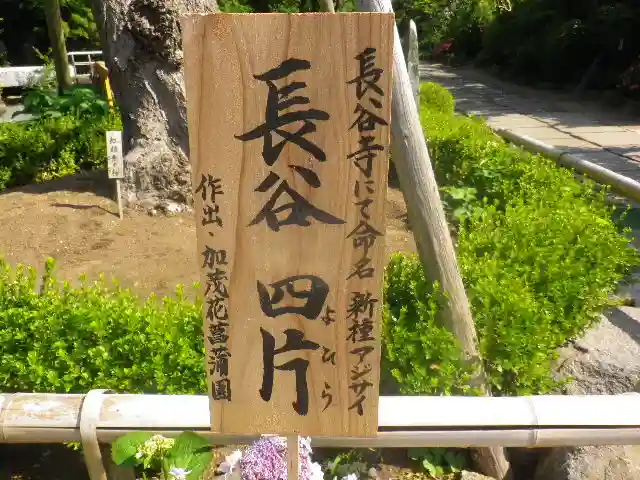 長谷寺にて命名 新種アジサイ
長谷 四片
よひら
作出、加茂花菖蒲園